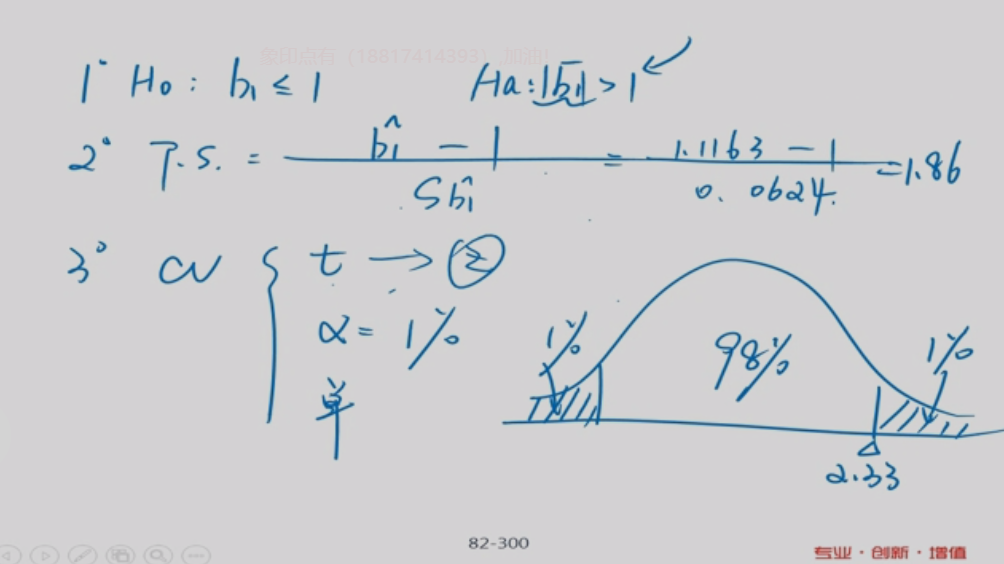 象印点有（18817414393）,加油!
1° H₀: b₁ ≤ 1 Ha: |b₁| > 1
2° T.S. = (b̂₁ − 1) / Sb̂₁ = (1.1163 − 1) / 0.0624 = 1.86
3° CV { t → z
α = 1%
单
1% 98% 1%
2.33
82-300
专业·创新·增值